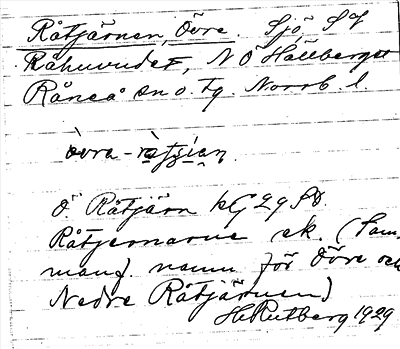 Råtjärnen, Övre. Sjö, S of
Råhuvudet, N Ö Hällberget
Råneå sn o. tg. Norrb. l.
òvra-ràtsian.
Ö. Råtjärn kG 29 SO.
Råtjernarne ek. (Sam-
manf. namn för Övre och
Nedre Råtjärnen)
H. Rutberg 1929